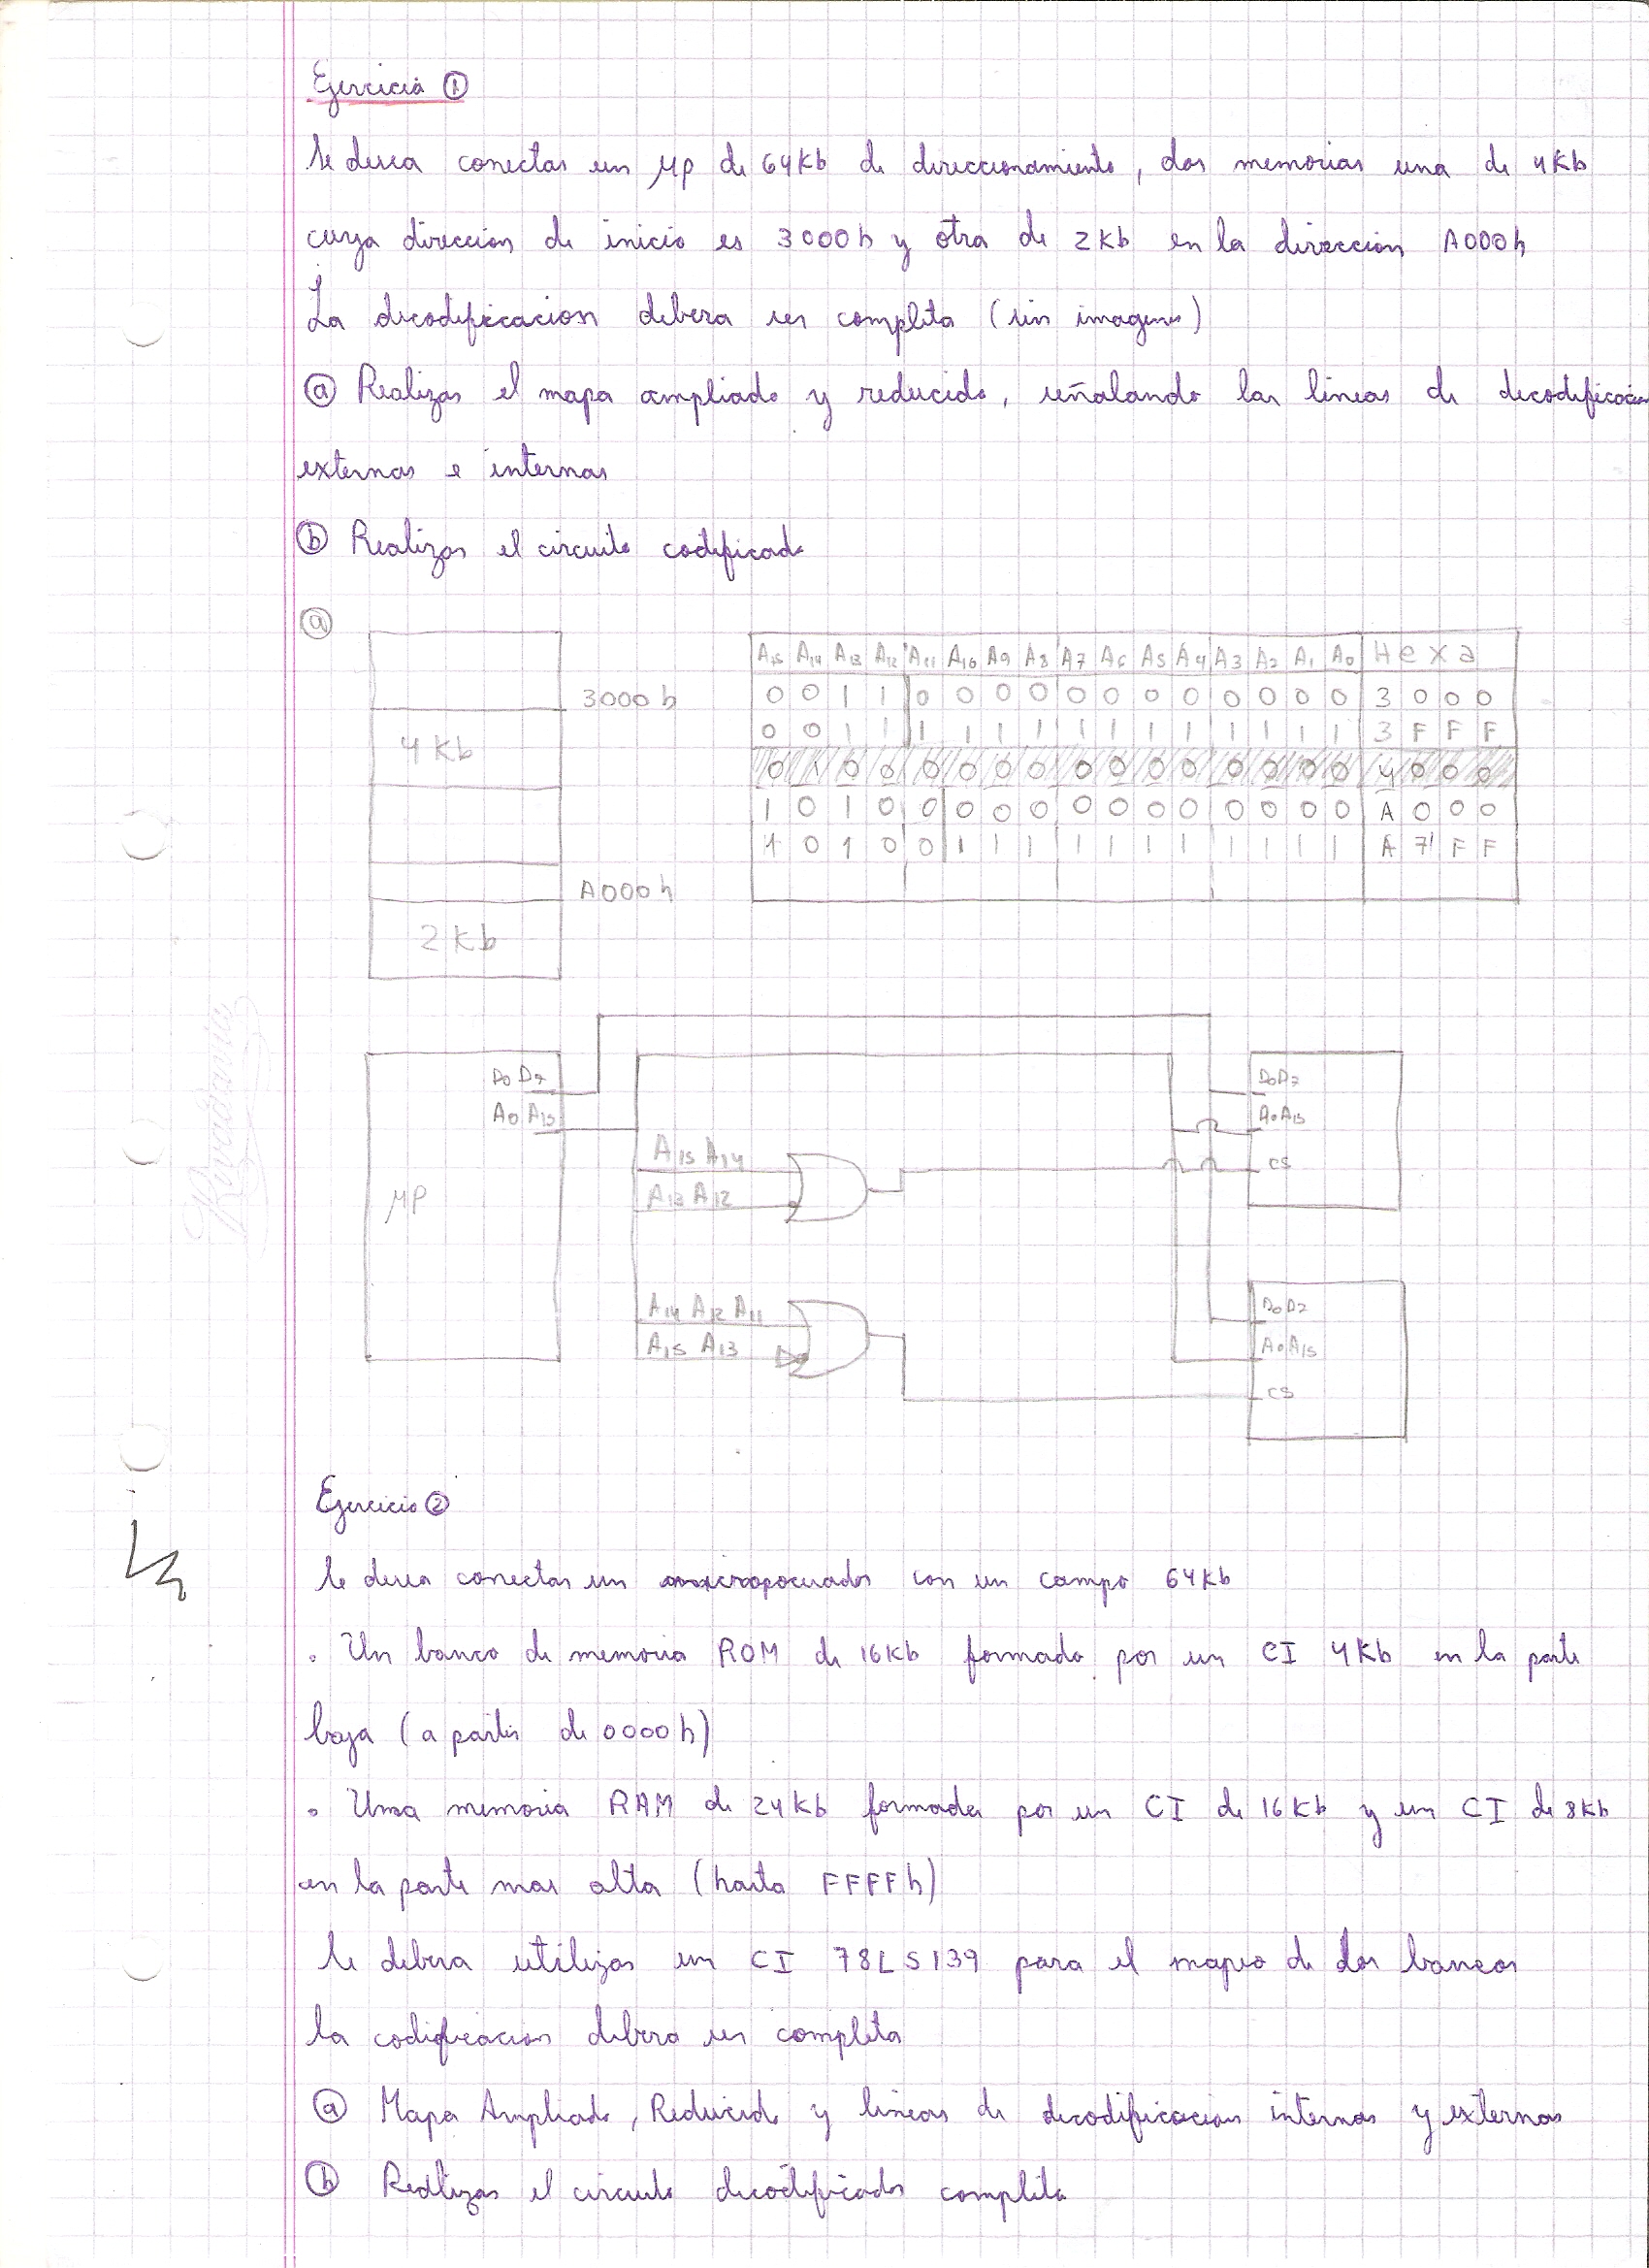 Ejercicio ①
Se desea conectar un μp de 64Kb de direccionamiento, dos memorias una de 4Kb
cuya dirección de inicio es 3000h y otra de 2Kb en la dirección A000h
La decodificacion debera ser completa (sin imagenes)
ⓐ Realizar el mapa ampliado y reducido, señalando las lineas de decodificacion
externas e internas
ⓑ Realizar el circuito codificado
ⓐ
A15 A14 A13 A12 A11 A10 A9 A8 A7 A6 A5 A4 A3 A2 A1 A0 Hexa
3000h 0 0 1 1 0 0 0 0 0 0 0 0 0 0 0 0 3 0 0 0
0 0 1 1 1 1 1 1 1 1 1 1 1 1 1 1 3 F F F
4Kb
0 1 0 0 0 0 0 0 0 0 0 0 0 0 0 0 4 0 0 0
1 0 1 0 0 0 0 0 0 0 0 0 0 0 0 0 A 0 0 0
1 0 1 0 0 1 1 1 1 1 1 1 1 1 1 1 A 7 F F
A000h
2Kb
D0 D7
A0 A15
μP
A15 A14
A13 A12
A14 A12 A11
A15 A13
D0D7
A0A15
CS
D0D7
A0A15
CS
Rivadavia
Ejercicio ②
Se desea conectar un microprocesador con un campo 64Kb
• Un banco de memoria ROM de 16Kb formado por un CI 4Kb en la parte
baja (a partir de 0000h)
• Una memoria RAM de 24Kb formada por un CI de 16Kb y un CI de 8Kb
en la parte mas alta (hasta FFFFh)
Se debera utilizar un CI 78LS139 para el mapeo de los bancos
la codificacion debera ser completa
ⓐ Mapa Ampliado, Reducido y lineas de decodificacion internas y externas
ⓑ Realizar el circuito decodificador completo